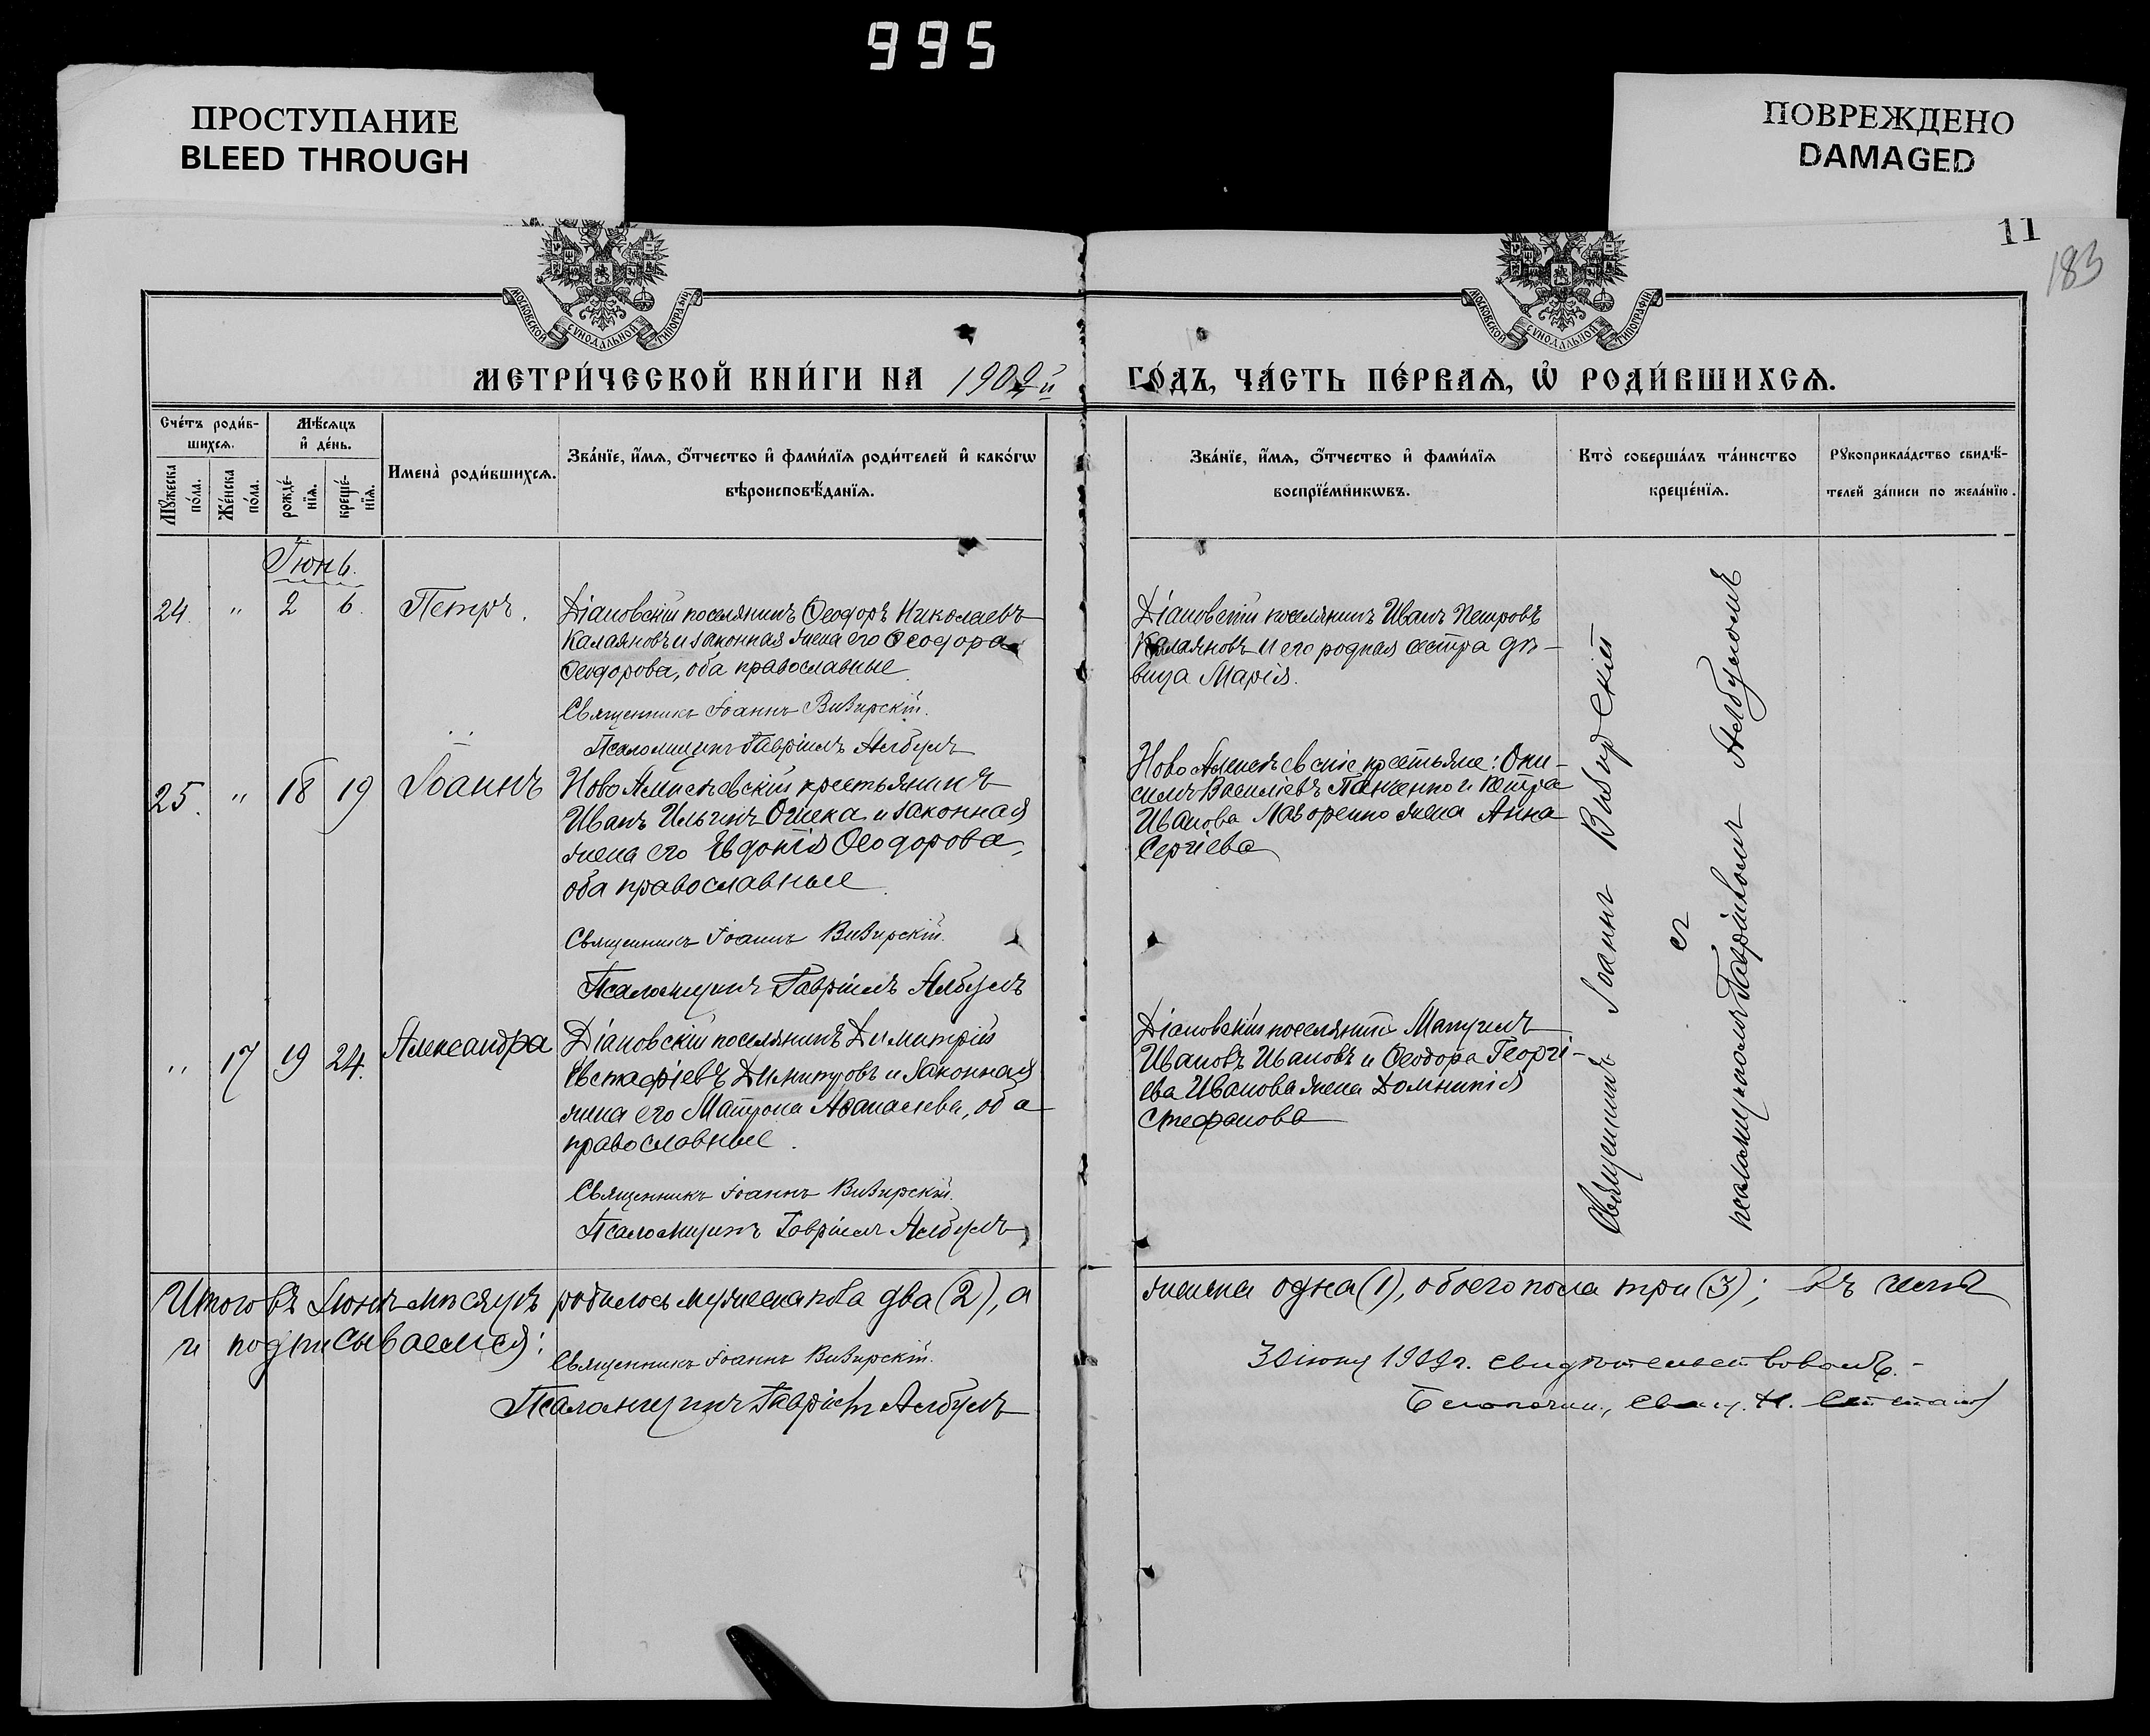 995
ПРОСТУПАНИЕ
BLEED THROUGH
ПОВРЕЖДЕНО
DAMAGED
11
183
МОСКОВСКОЙ СУНОДАЛЬНОЙ ТИПОГРАФІИ
МОСКОВСКОЙ СУНОДАЛЬНОЙ ТИПОГРАФІИ
МЕТРИ́ЧЕСКОЙ КНИ́ГИ НА 1909й ГО́ДЪ, ЧА́СТЬ ПЕ́РВАѦ, Ѡ҆ РОДИ́ВШИХСѦ.
Сче́тъ роди́в-
шихсѧ.
Мѣ́сѧцъ
и҆ де́нь.
Мꙋ́жеска по́ла.
Же́нска по́ла.
рожде́-
нїѧ.
креще́-
нїѧ.
Имена̀ роди́вшихсѧ.
Зва́нїе, и҆́мѧ, ѻ҆́тчество и҆ фами́лїѧ роди́телей и҆ како́гѡ
вѣроисповѣ́данїѧ.
Зва́нїе, и҆́мѧ, ѻ҆́тчество и҆ фами́лїѧ
воспрїе́мникѡвъ.
Кто̀ соверша́лъ та́инство
креще́нїѧ.
Рꙋкоприкла́дство свидѣ́-
телей за́писи по жела́нїю.
Іюнь.
24. " 2 6. Петръ.
Діановскій поселянинъ Ѳеодоръ Николаевъ
Калаяновъ и законная жена его Ѳеодора
Ѳеодорова, оба православные.
Священникъ Іоаннъ Визирскій.
Псаломщикъ Гавріилъ Албулъ
Діановскій поселянинъ Иванъ Петровъ
Калаяновъ и его родная сестра дѣ-
вица Марія.
25. " 18 19 Іоаннъ
Ново Алексѣевскій крестьянинъ
Иванъ Ильинъ и законная
жена его Евдокія Ѳеодорова,
оба православные.
Священникъ Іоаннъ Визирскій.
Псаломщикъ Гавріилъ Албулъ
Ново Алексѣевскіе крестьяне: Они-
симъ Василіевъ Панченко и Петра
Иванова Лавренно жена Анна
Сергіева
" 17 19 24. Александра
Діановскій поселянинъ Димитрій
Евстафіевъ Димитровъ и законная
жена его Матрона Аѳанасіева, оба
православные.
Священникъ Іоаннъ Визирскій.
Псаломщикъ Гавріилъ Албулъ
Діановскій поселянинъ
Ивановъ Ивановъ и Ѳеодора Георгі-
ева Иванова жена Домникія
Стефанова
Священникъ Іоаннъ Визирскій
съ
псаломщикомъ Гавріиломъ Албуломъ
Итого въ Іюнѣ мѣсяцѣ родилось мужеска пола два (2), а женска одна (1), обоего пола три (3); въ чемъ
и подписываемся:
Священникъ Іоаннъ Визирскій.
Псаломщикъ Гавріилъ Албулъ
30 іюня 1909 г. свидѣтельствовалъ.-
Благочин., Свящ. Н.